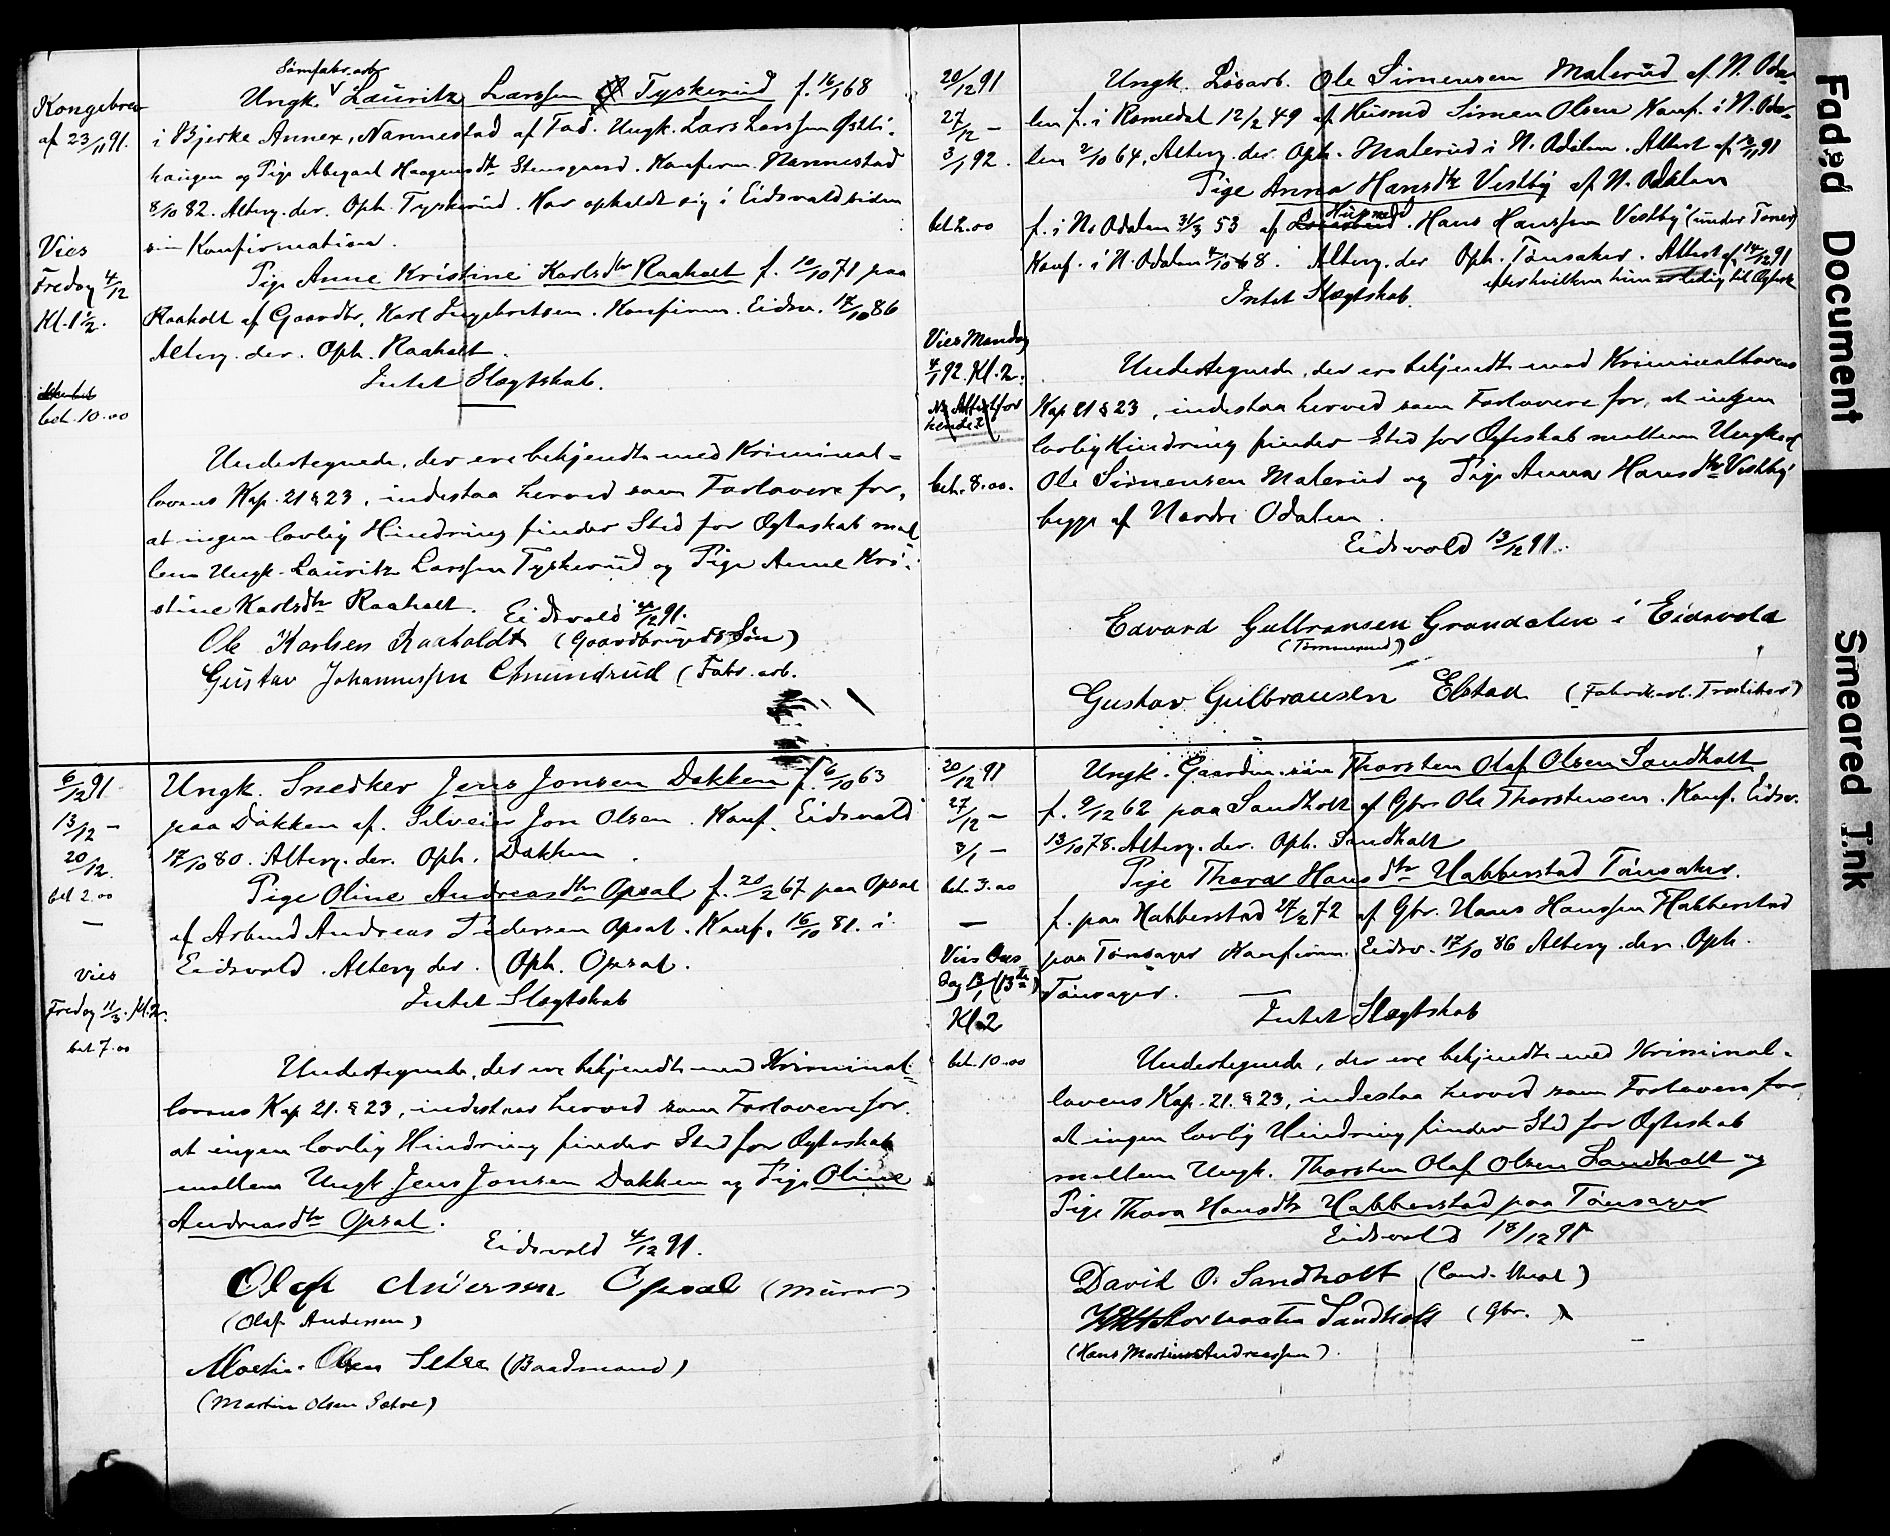 Kongebrev
af 23/11 91.
Vies
Fredag 4/12
Kl. 1½.
bet. 10.00
Sømfabr. arb
Ungk. Lauritz Larssen Tyskerud f. 16/1 68
i Bjerke Annex, Nannestad af Fad. Ungk. Lars Larssen
haugen og Pige Abegael Haagensdtr Stensgaard. Konfirm. Nannestad
8/10 82. Alterg. der. Oph. Tyskerud. Har opholdt sig i Eidsvold siden
sin Konfirmation.
Pige Anne Kristine Karlsdtr Raaholt f. 10/10 71 paa
Raaholt af Gaardbr. Karl Ingebretsen. Konfirm. Eidsv. 17/10 86
Alterg. der. Oph. Raaholt.
Intet Slægtskab.
Undertegnede, der ere bekjendte med Kriminal=
lovens Kap. 21 § 23, indestaa herved som Forlovere for,
at ingen lovlig Hindring finder Sted for Ægteskab mel
lem Ungk. Lauritz Larssen Tyskerud og Pige Anne Kri-
stine Karlsdtr Raaholt. Eidsvold 4/12 91.
Ole Karlsen Raaholdt (Gaardbrugers Søn)
Gustav Johannessen Amundrud (Fabr. arb.
6/12 91
13/12 –
20/12.
bet 2.00
–
Vies
Fredag 11/3. Kl. 2.
bet 7.00
Ungk. Snedker Jens Jonsen Dokken f. 6/10 63
paa Dokken af. Selveier Jon Olsen. Konf. Eidsvold
17/10 80. Alterg. der. Oph. Dokken.
Pige Oline Andreasdtr Opsal f. 20/2 67 paa Opsal
af Arbmd Andreas Pedersen Opsal. Konf. 16/10 81. i
Eidsvold. Alterg der. Oph. Opsal.
Intet Slægtskab
Undertegnede, der ere bekjendte med Kriminal-
lovens Kap 21. § 23, indestaa herved som Forlovere for.
at ingen lovlig Hindring finder Sted for Ægteskab
mellem Ungk Jens Jonsen Dokken og Pige Oline
Andreasdtr Opsal.
Eidsvold 4/12 91.
Olaf Andersen Opsal (Murer)
(Olaf Andersen)
Martin Olsen Setre (Baadmand)
(Martin Olsen Sætre)
20/12 91
27/12 –
3/1 92.
bet 2.00
Vies Mandag
4/1 92. Kl. 2.
Attest for
bet. 8.00.
Ungk. Løsarb. Ole Simensen Malerud af N. Oda-
len f. i Romedal 12/2 49 af Husmd Simen Olsen Konf. i N. Oda-
len 2/10 64, Alterg. der. Oph. Malerud i N. Odalen. Attest af 91
Pige Anna Hansdtr Vestby af N. Odalen
Husmd
f. i N. Odalen 31/3 53 af Hans Hanssen Vestby (under Toner)
Konf. i N. Odalen 4/10 68. Alterg. der Oph. Tønsaker. Attest af 14/12 91
efter hvilken hun er ledig til Ægtesk
Intet Slægtskab.
Undertegnede, der ere bekjendte med Kriminallovens
Kap 21 § 23, indestaa herved som Forlovere for, at ingen
lovlig Hindring finder Sted for Ægteskab mellem Ungkarl
Ole Simensen Malerud og Pige Anna Hansdtr Vestby
begge af Nordre Odalen.
Eidsvold 13/12 91.
Edvard Gulbransen Grandalen i Eidsvold
(Tømmermd)
Gustav Gulbransen Elstad (Fabrikarb. Træsliber)
20/12 91
27/12 –
3/1 –
bet. 3.00
–
Vies Ons
dag 13/1 (13de)
Kl. 2
bet. 10.00
Ungk. Gaardm. søn Thorsten Olaf Olsen Sandholt
f. 9/12 62 paa Sandholt af Gbr. Ole Thorstensen. Konf. Eidsv.
13/10 78. Alterg. der. Oph. Sandholt
Pige Thora Hansdtr Habberstad Tønsaker.
f. paa Habberstad 27/2 72 af Gbr. Hans Hanssen Habberstad
paa Tønsager Konfirm. Eidsv. 17/10 86 Alterg. der. Oph.
Tønsager.
Intet Slægtskab
Undertegnede, der ere bekjendte med Kriminal-
lovens Kap. 21. § 23, indestaa herved som Forlovere for
at ingen lovlig Hindring finder Sted for Ægteskab
mellem Ungk. Thorsten Olaf Olsen Sandholt og
Pige Thora Hansdtr Habberstad paa Tønsager
Eidsvold 18/12 91
David O. Sandholt (Cand. theol)
Sandholt (Gbr. )
(Hans Martinus Andreassen).
Faded Document
Smeared Ink